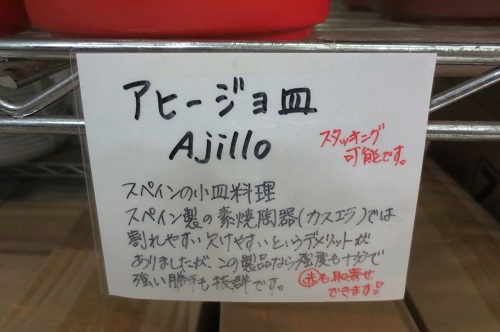 アヒージョ皿
Ajillo
スタッキング
可能です。
スペインの小皿料理
スペイン製の素焼陶器(カスエラ)では
割れやすい欠けやすいというデメリットが
ありましたが、この製品なら強度も十分で
強い勝手も抜群です。
赤も取寄せ
できます!